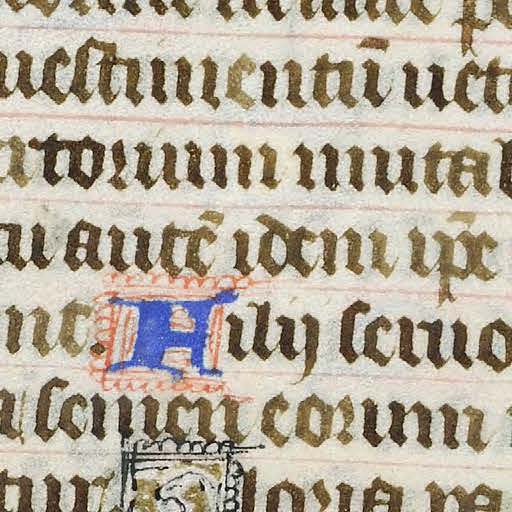 uestimentū uet
torum mutab
autē idem ip̄e
nt. Filij seruo
semen eorum
tur loria pa